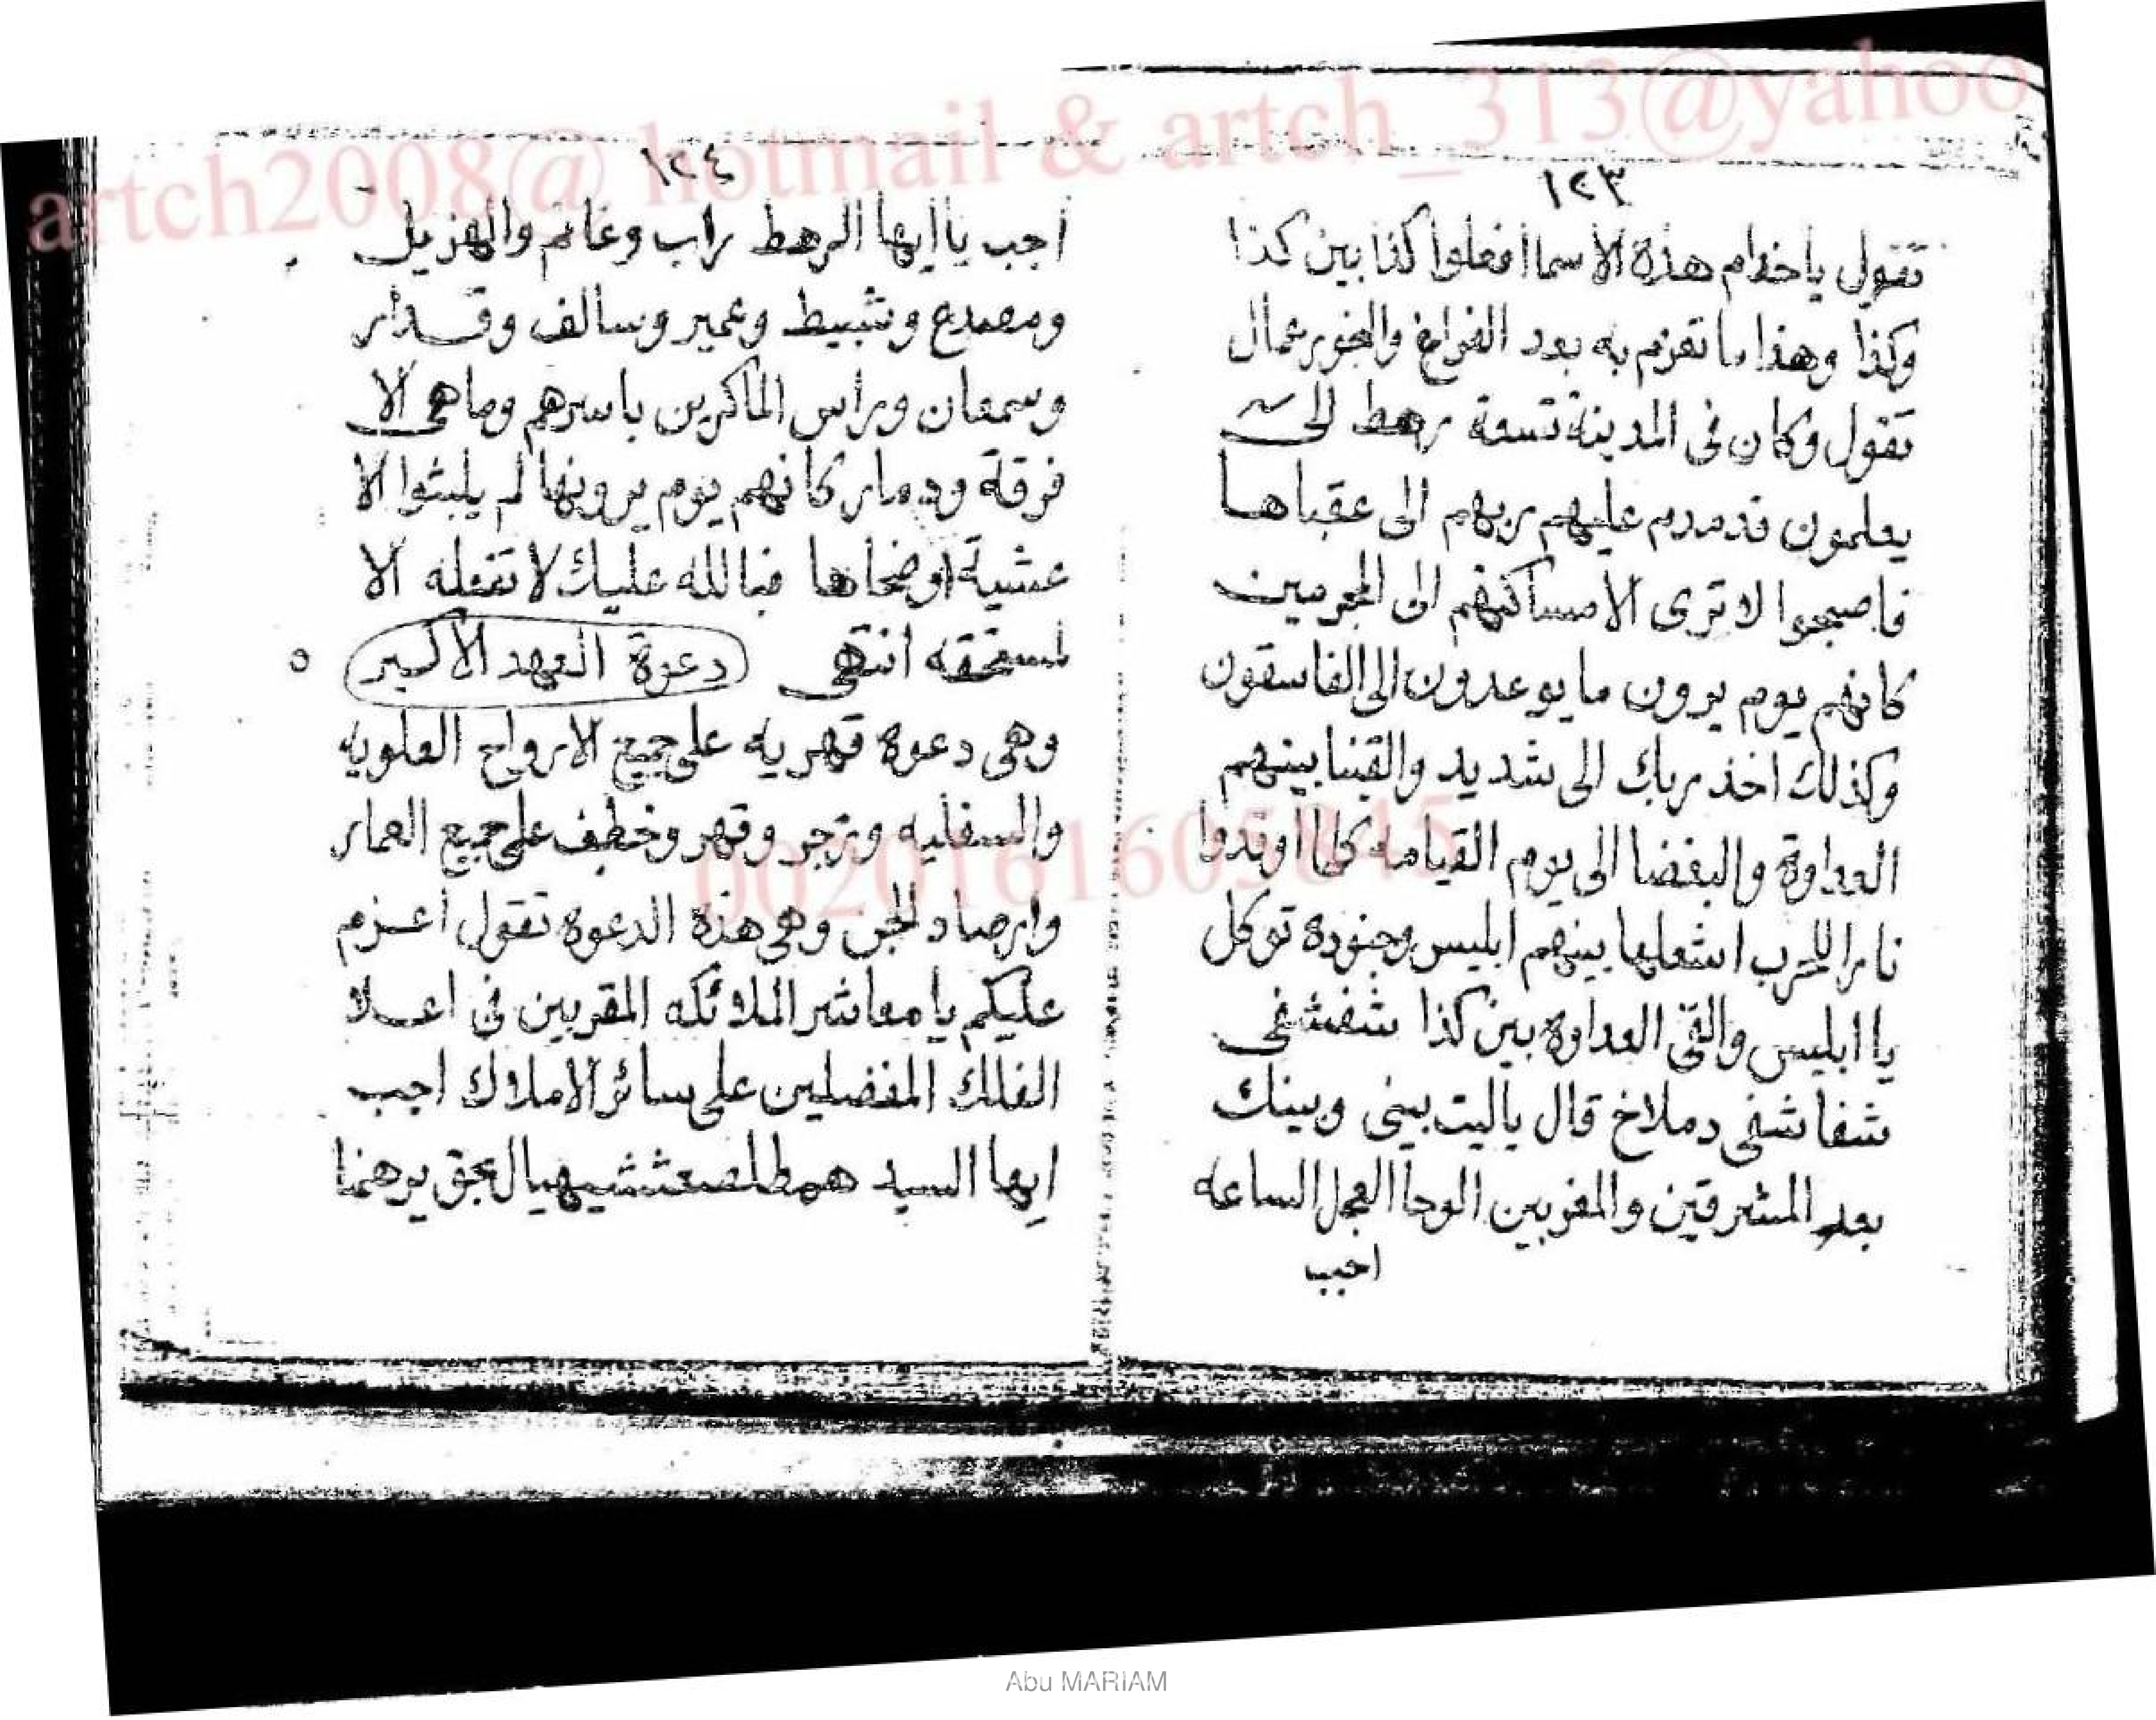 artch2008@ hotmail & artch_313@yahoo
١٢٣
تقول ياخدام هذه الاسما افعلوا كذا بين كذا
وكذا وهذا ما تعزم به بعد الفراغ والبخور عمال
تقول وكان فى المدينة تسعة رهط الى
يعلمون فدمدم عليهم ربهم الى عقباها
فاصبحوا لا ترى الا مساكنهم الى المجرمين
كانهم يوم يرون ما يوعدون الى الفاسقون
وكذلك اخذ ربك الى شديد والقينا بينهم
العداوة والبغضا الى يوم القيامه كلما اوقدوا
نارا للحرب اشعلها بينهم ابليس وجنوده توكل
يا ابليس والقى العداوه بين كذا شفشفى
شفاشفى دملاخ قال ياليت بينى وبينك
بعد المشرقين والمغربين الوحا العجل الساعه
اجب
١٢٤
اجب يا ايها الرهط راب وغانم والهزيل
ومصدع وثبيط وعمير وسالف وقدار
وسمعان وراس الماكرين باسرهم وماهى الا
فرقة ودمار كانهم يوم يرونها لم يلبثوا الا
عشية اوضحاها فبالله عليك لا تفعله الا
لمستحقه انتهى دعوة العهد الاكبر
وهى دعوه قهريه على جميع الارواح العلويه
والسفليه وزجر وقهر وخطف على جميع العمار
وارصاد الجن وهى هذه الدعوه تقول اعزم
عليكم يا معاشر الملائكه المقربين فى اعلا
الفلك المفضلين على سائر الاملاك اجب
ايها السيد همطلصعثشيهيال بحق يرهنا
00201616058​45
Abu MARIAM